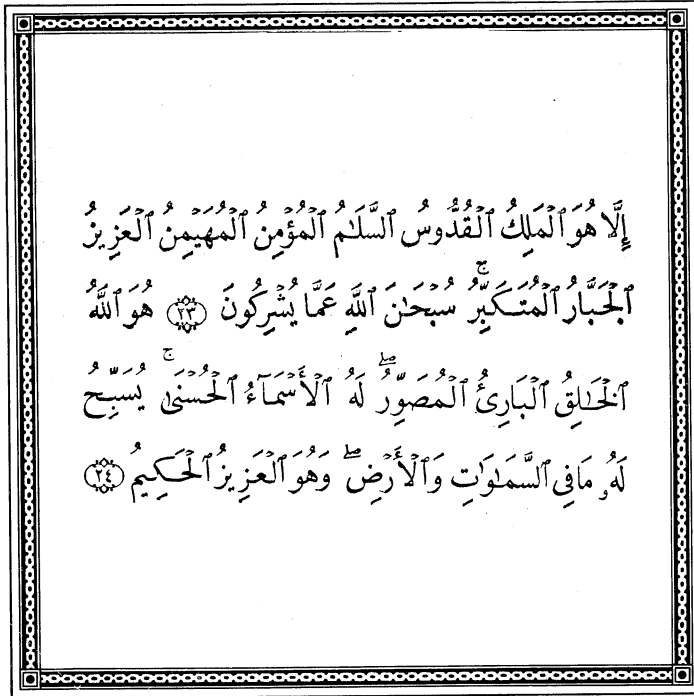 إِلَّا هُوَ ٱلْمَلِكُ ٱلْقُدُّوسُ ٱلسَّلَٰمُ ٱلْمُؤْمِنُ ٱلْمُهَيْمِنُ ٱلْعَزِيزُ
ٱلْجَبَّارُ ٱلْمُتَكَبِّرُ ۚ سُبْحَٰنَ ٱللَّهِ عَمَّا يُشْرِكُونَ ﴿٢٣﴾ هُوَ ٱللَّهُ
ٱلْخَٰلِقُ ٱلْبَارِئُ ٱلْمُصَوِّرُ ۖ لَهُ ٱلْأَسْمَآءُ ٱلْحُسْنَىٰ ۚ يُسَبِّحُ
لَهُۥ مَا فِى ٱلسَّمَٰوَٰتِ وَٱلْأَرْضِ ۖ وَهُوَ ٱلْعَزِيزُ ٱلْحَكِيمُ ﴿٢٤﴾